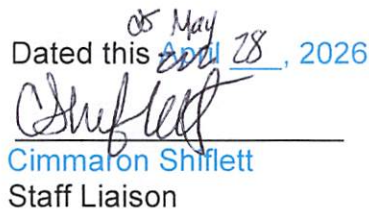 cs May
Dated this April 28, 2026
CShiflett
Cimmaron Shiflett
Staff Liaison